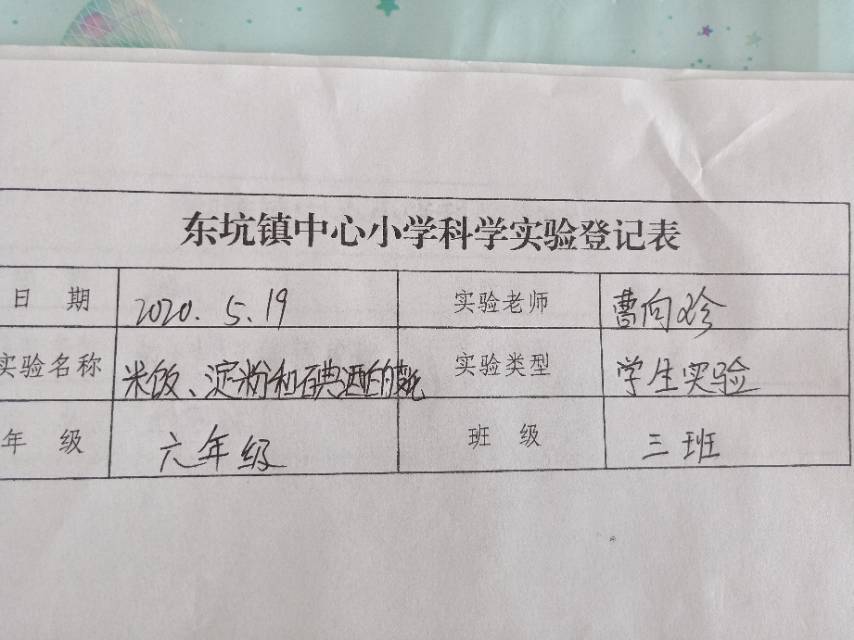 东坑镇中心小学科学实验登记表
日 期 2020.5.19 实验老师 曹向珍
实验名称 米饭、淀粉和碘酒的变化 实验类型 学生实验
年 级 六年级 班 级 三班